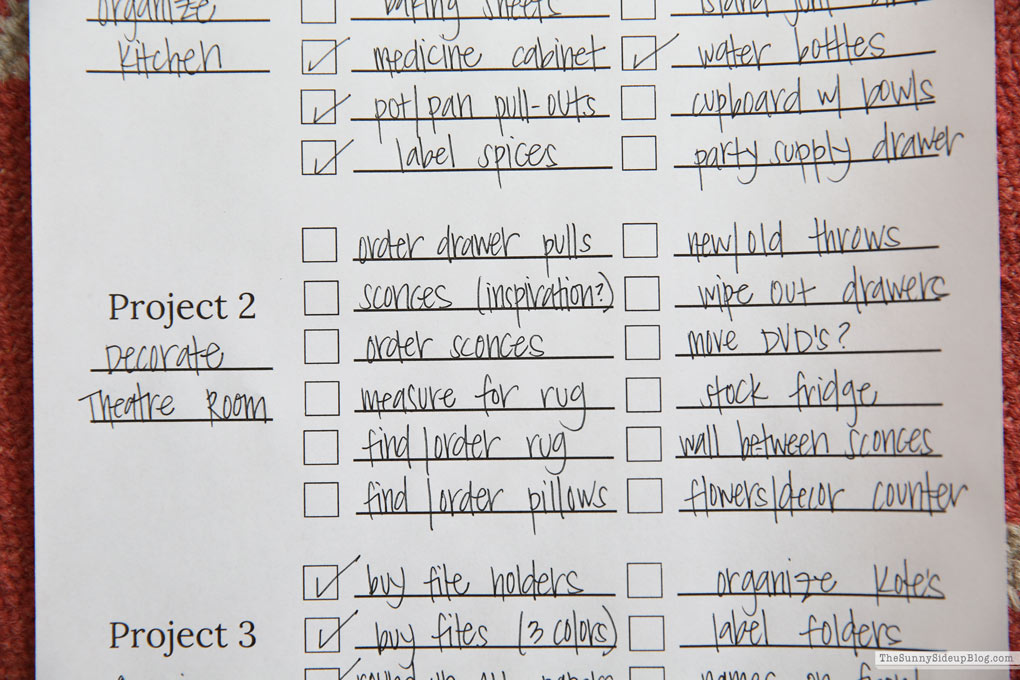 organize
baking sheets
Kitchen
medicine cabinet
water bottles
pot/pan pull-outs
cupboard w/ bowls
label spices
party supply drawer
Project 2
Decorate
Theatre Room
order drawer pulls
new/old throws
sconces (inspiration?)
wipe out drawers
order sconces
move DVD's?
measure for rug
stock fridge
find/order rug
wall between sconces
find/order pillows
flowers/decor counter
Project 3
buy file holders
organize Kole's
buy files (3 colors)
label folders
names on front
TheSunnySideupBlog.com